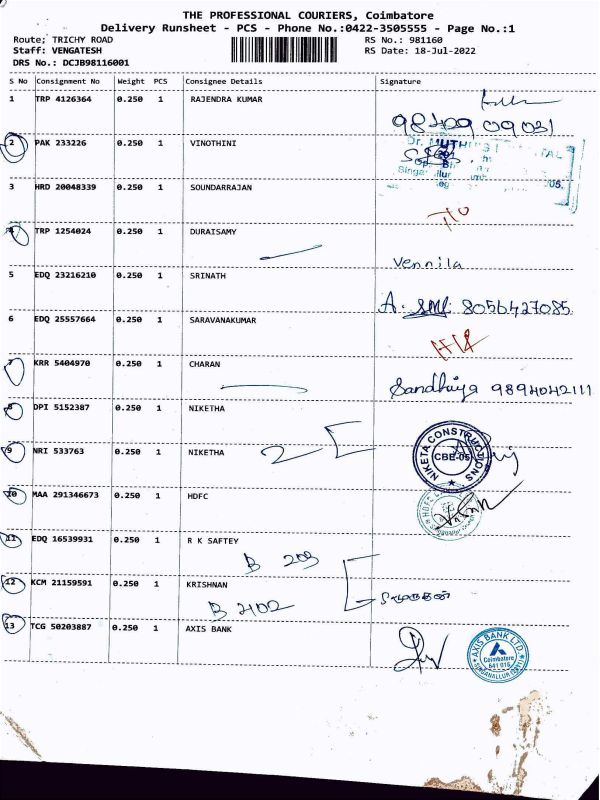 THE PROFESSIONAL COURIERS, Coimbatore
Delivery Runsheet - PCS - Phone No.:0422-3505555 - Page No.:1
Route; TRICHY ROAD RS No.: 981160
Staff: VENGATESH RS Date: 18-Jul-2022
DRS No.: DCJB98116001
S No Consignment No Weight PCS Consignee Details Signature
1 TRP 4126364 0.250 1 RAJENDRA KUMAR
98409 09031
2 PAK 233226 0.250 1 VINOTHINI
3 HRD 20048339 0.250 1 SOUNDARRAJAN
4 TRP 1254024 0.250 1 DURAISAMY
Vennila
5 EDQ 23216210 0.250 1 SRINATH
8056427085
6 EDQ 25557664 0.250 1 SARAVANAKUMAR
7 KRR 5404970 0.250 1 CHARAN
Sandhiya 9894042111
8 DPI 5152387 0.250 1 NIKETHA
9 NRI 533763 0.250 1 NIKETHA 2
NIKETA CONSTRUCTIONS
CBE-05
10 MAA 291346673 0.250 1 HDFC
11 EDQ 16539931 0.250 1 R K SAFTEY
B 203
12 KCM 21159591 0.250 1 KRISHNAN
B 402
13 TCG 50203887 0.250 1 AXIS BANK
AXIS BANK LTD.
Coimbatore
641 016
SINGANALLUR